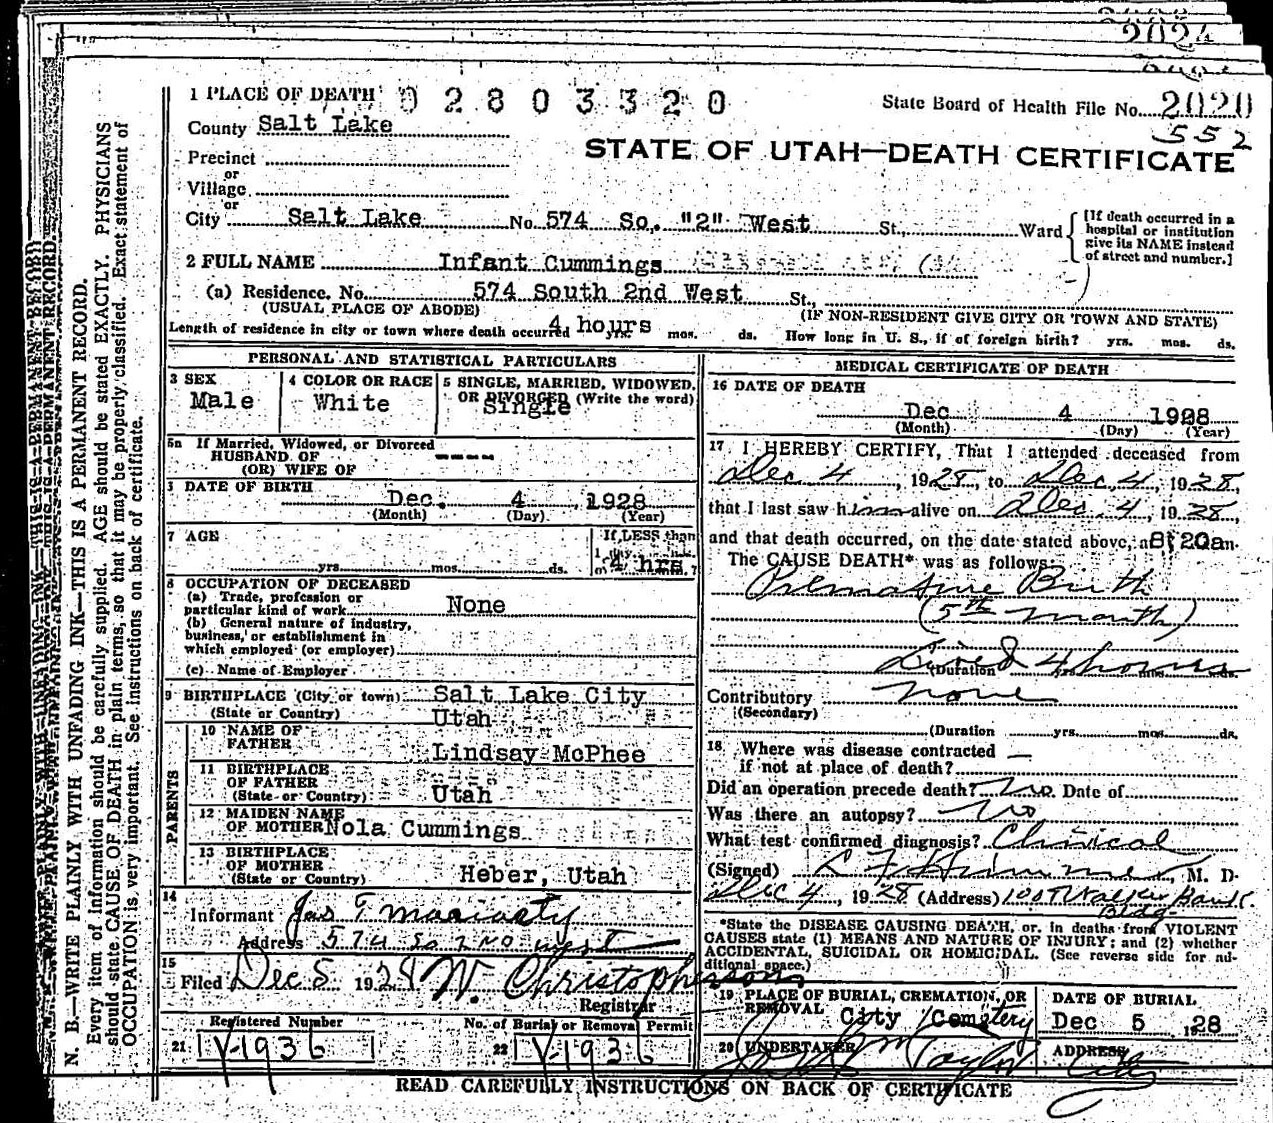 2024
1 PLACE OF DEATH 0 2 8 0 3 3 2 0
State Board of Health File No. 2020
552
County Salt Lake
STATE OF UTAH—DEATH CERTIFICATE
Precinct
or
Village
or
City Salt Lake No. 574 So. "2" West St., Ward
[If death occurred in a
hospital or institution
give its NAME instead
of street and number.]
2 FULL NAME Infant Cummings
(a) Residence. No. 574 South 2nd West St.,
(USUAL PLACE OF ABODE) (IF NON-RESIDENT GIVE CITY OR TOWN AND STATE)
Length of residence in city or town where death occurred 4 hours yrs. mos. ds. How long in U. S., if of foreign birth? yrs. mos. ds.
PERSONAL AND STATISTICAL PARTICULARS
3 SEX
Male
4 COLOR OR RACE
White
5 SINGLE, MARRIED, WIDOWED,
OR DIVORCED (Write the word)
Single
5a If Married, Widowed, or Divorced
HUSBAND OF ----
(OR) WIFE OF
DATE OF BIRTH
Dec. 4 , 1928
(Month) (Day) (Year)
7 AGE
yrs. mos. ds.
If LESS than
4 hrs.
8 OCCUPATION OF DECEASED
(a) Trade, profession or
particular kind of work None
(b) General nature of industry,
business, or establishment in
which employed (or employer)
(c) Name of Employer
9 BIRTHPLACE (City or town) Salt Lake City
(State or Country) Utah
PARENTS
10 NAME OF
FATHER Lindsay McPhee
11 BIRTHPLACE
OF FATHER
(State or Country) Utah
12 MAIDEN NAME
OF MOTHER Nola Cummings
13 BIRTHPLACE
OF MOTHER
(State or Country) Heber, Utah
14
Informant Jas T Moriarty
Address 574 So 2nd West
15
Filed Dec 5 1928 W. Christopherson
Registrar
Registered Number
21 V-1936
No. of Burial or Removal Permit
22 V-1936
MEDICAL CERTIFICATE OF DEATH
16 DATE OF DEATH
Dec 4 1928
(Month) (Day) (Year)
17 I HEREBY CERTIFY, That I attended deceased from
Dec 4, 1928, to Dec, 4, 1928,
that I last saw him alive on Dec. 4, 1928,
and that death occurred, on the date stated above, at 8:20am.
The CAUSE DEATH* was as follows:
Premature Birth
(5th month)
Lived 4 hours
(Duration yrs. mos. ds.
Contributory none
(Secondary)
(Duration yrs. mos. ds.
18 Where was disease contracted
if not at place of death? —
Did an operation precede death? No. Date of
Was there an autopsy? No
What test confirmed diagnosis? Clinical
(Signed) M. D.
Dec 4, 1928 (Address) 1007 Walker Bank
Bldg
*State the DISEASE CAUSING DEATH, or, in deaths from VIOLENT
CAUSES state (1) MEANS AND NATURE OF INJURY; and (2) whether
ACCIDENTAL, SUICIDAL OR HOMICIDAL. (See reverse side for ad-
ditional space.)
19 PLACE OF BURIAL, CREMATION, OR
REMOVAL City Cemetery
DATE OF BURIAL
Dec 5 , 28
20 UNDERTAKER Taylor
ADDRESS
City
READ CAREFULLY INSTRUCTIONS ON BACK OF CERTIFICATE
N. B.—WRITE PLAINLY WITH UNFADING INK—THIS IS A PERMANENT RECORD.
Every item of information should be carefully supplied. AGE should be stated EXACTLY. PHYSICIANS
should state CAUSE OF DEATH in plain terms, so that it may be properly classified. Exact statement of
OCCUPATION is very important. See instructions on back of certificate.